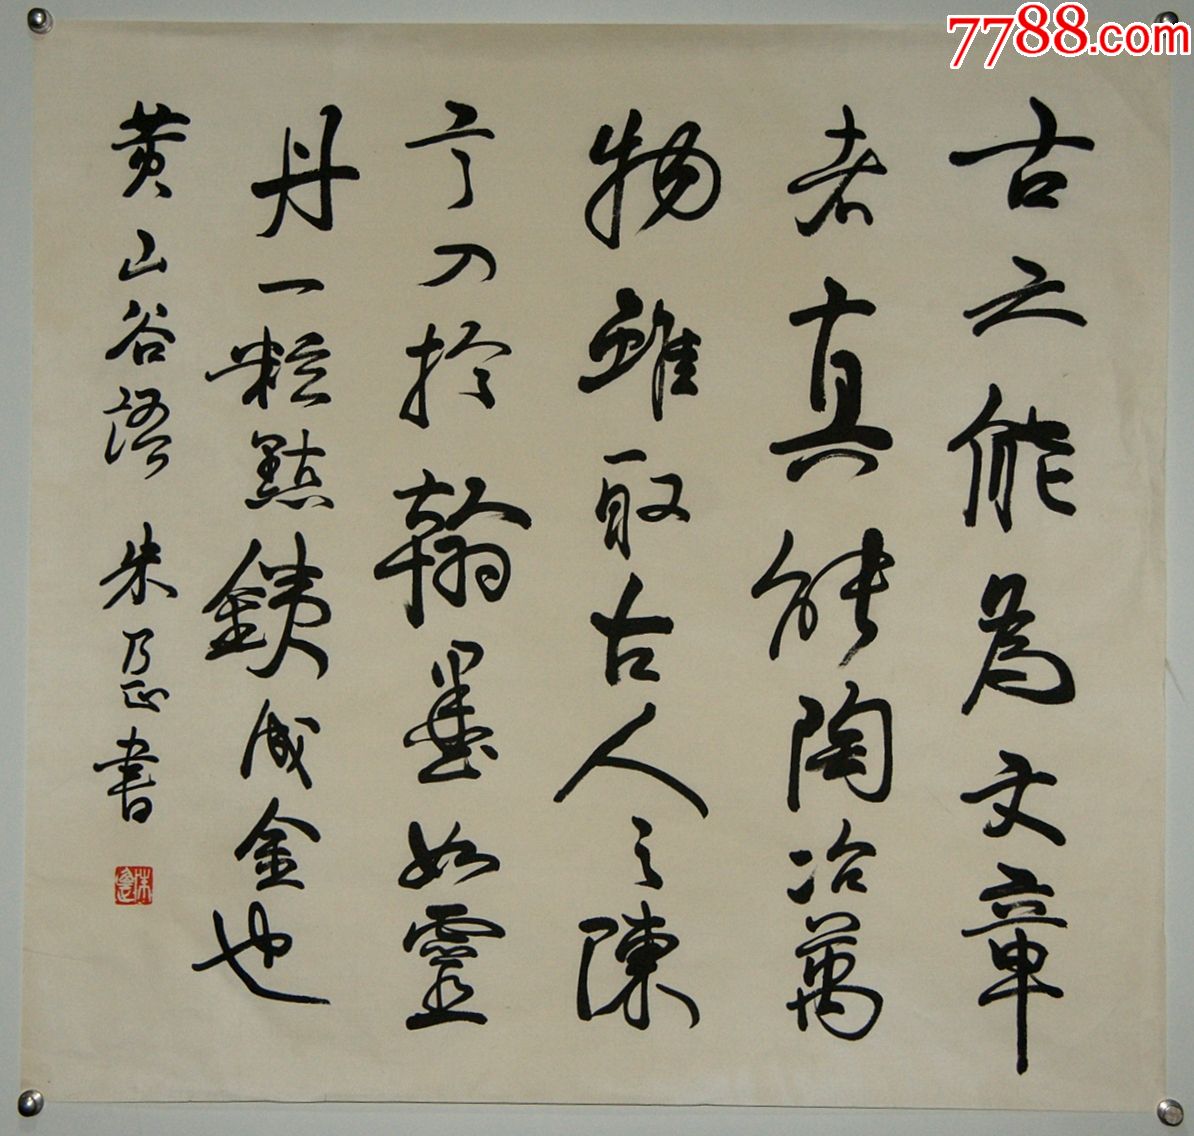 7788.com
古之能為文章
者真能陶冶萬
物雖取古人之陳
言入於翰墨如靈
丹一粒點銕成金也
黄山谷語 朱乃正書